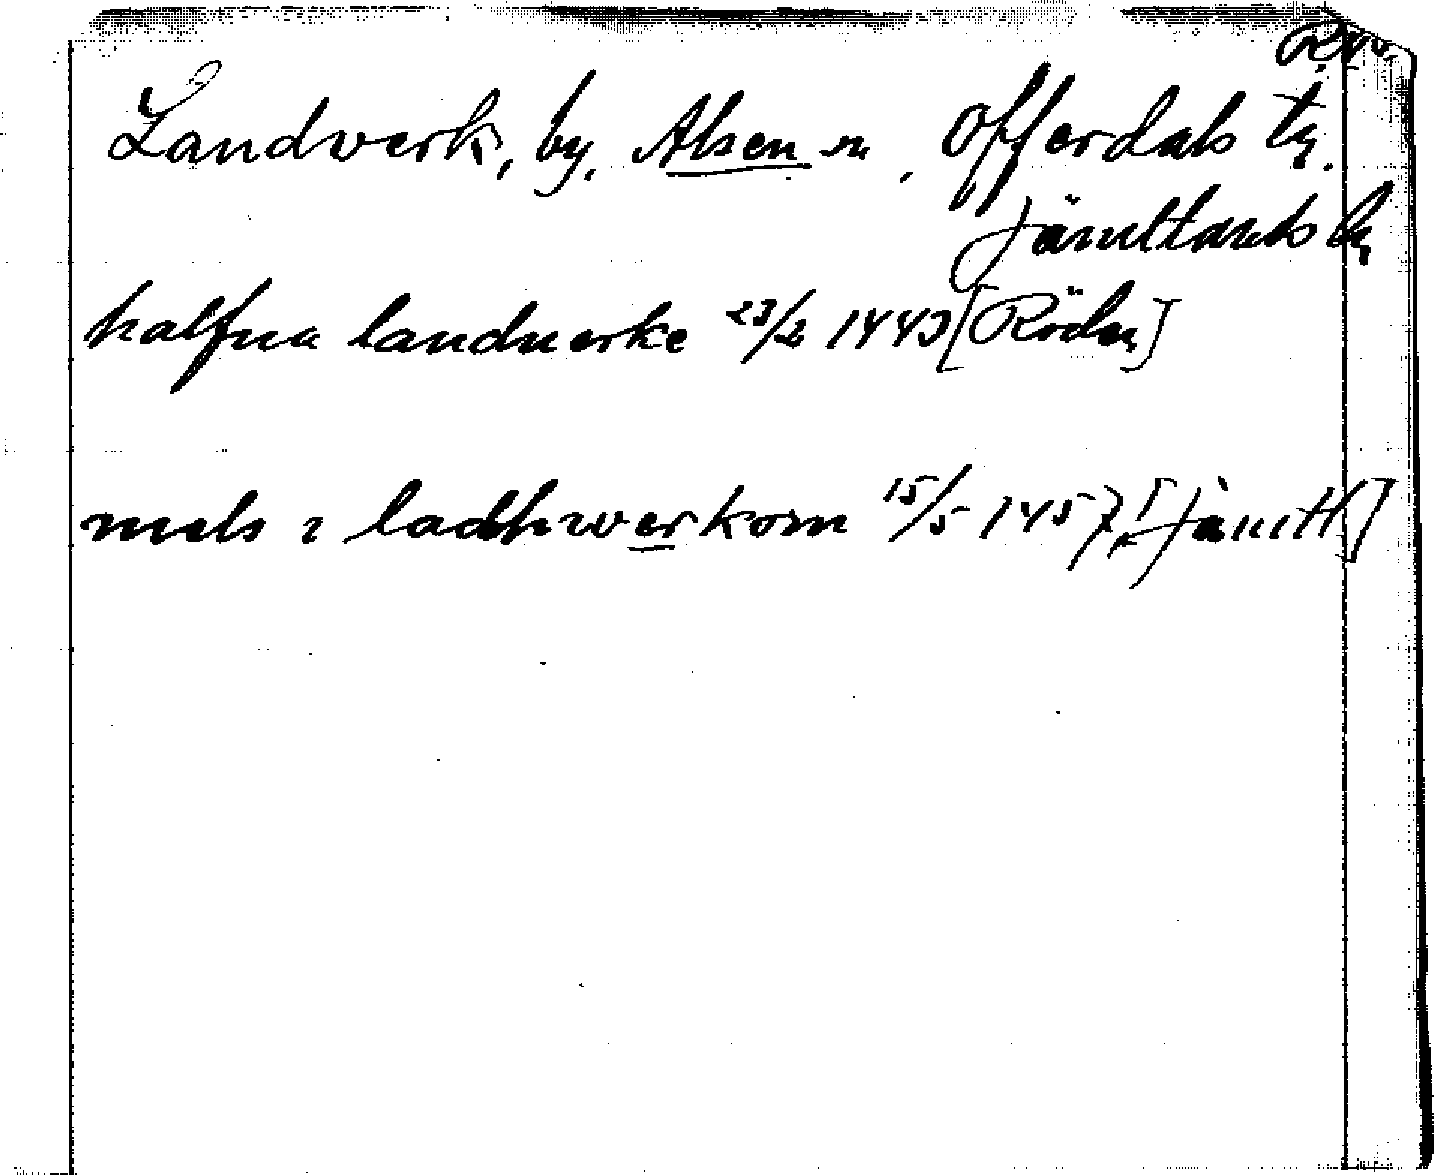 Landverk, by, Alsen sn, Offerdals tg.
Jämtlands l.
halfua landuerke 23/2 1443 [Rödn]
niels i ladhwerkom 15/5 1457 [Jämtl]